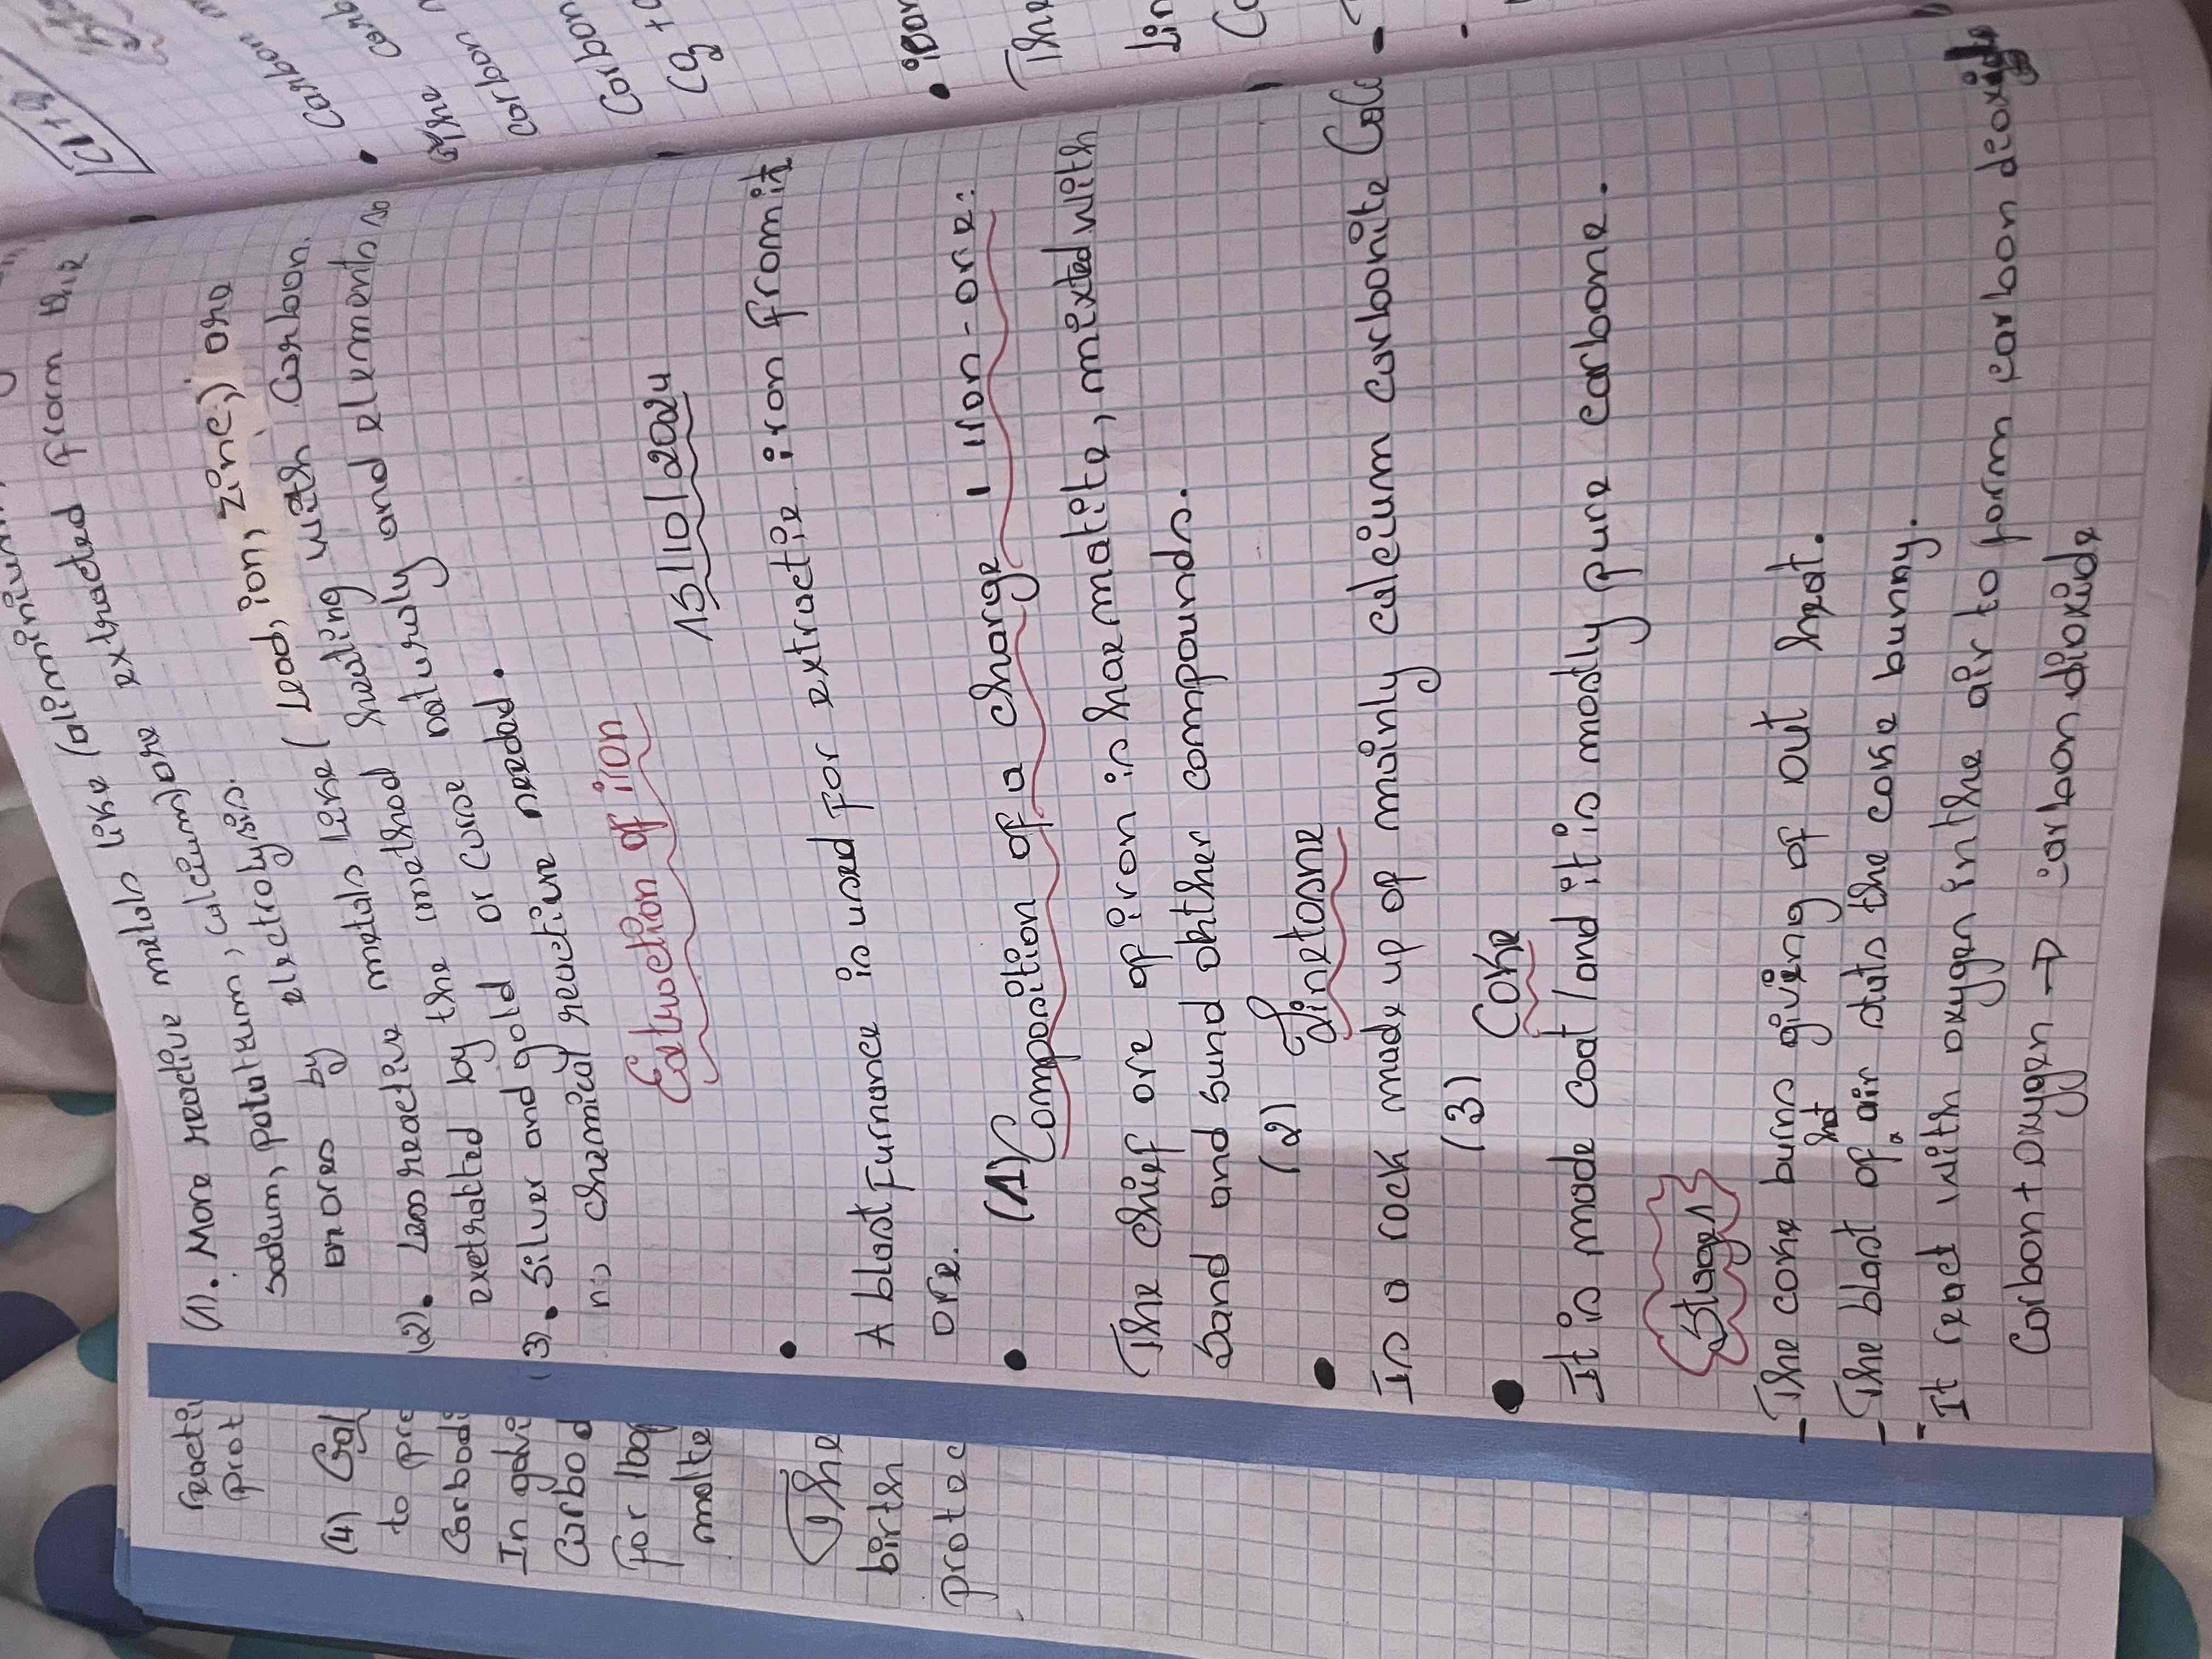 (1). More reactive metals like (aliminium,
sodium, potatium, calcium) are extracted from thie
onores by electrolysis.
(2). Less reactive metals like ( Lead, ion, zinc,) are
exetratted by the method heating with Carbon.
(3). Silver and gold or curse naturoly and elements so
no chemical reactive needed.
Extraction of iron
15/10/2024
• A blast Furnance is used For extractie iron fromit
ore.
• (1) Composition of a charge 1 iron-ore:
The chief ore of iron is haermatite, mixted with
sand and sund ohther compounds.
(2) Linetosne
• Is a rock made up of mainly calcium carbonite Calc
(3) Coke
• It is made coat /and it is mostly pure carbone.
Stages
- The coke burns giving of out heat.
- The blast of a hot air stats the coke bunny.
- It react with oxygen in the air to form carbon deoxide
Carbon + oxygen → carbon dioxide
reacti
prot
(4) Gal
to pre
Carbodi
In galvi
Carbod
For loop
molte
The
birth
protec
C1+9
carbon
• The
carbon
Carbon
• iron
The
Lin